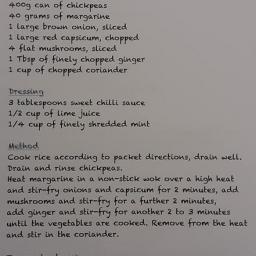 400g can of chickpeas
40 grams of margarine
1 large brown onion, sliced
1 large red capsicum, chopped
4 flat mushrooms, sliced
1 Tbsp of finely chopped ginger
1 cup of chopped coriander
Dressing
3 tablespoons sweet chilli sauce
1/2 cup of lime juice
1/4 cup of finely shredded mint
Method
Cook rice according to packet directions, drain well.
Drain and rinse chickpeas.
Heat margarine in a non-stick wok over a high heat
and stir-fry onions and capsicum for 2 minutes, add
mushrooms and stir-fry for a further 2 minutes,
add ginger and stir-fry for another 2 to 3 minutes
until the vegetables are cooked. Remove from the heat
and stir in the coriander.